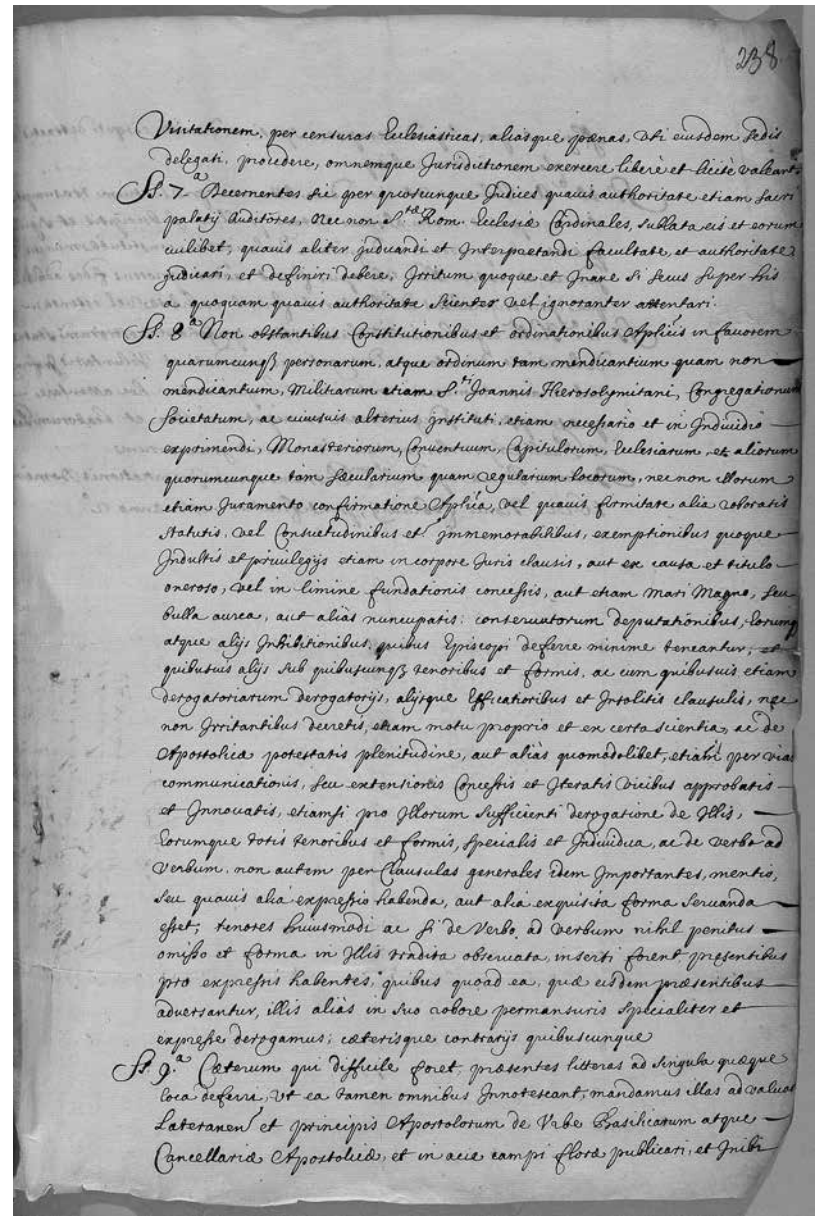 238
Visitationem, per censuras Ecclesiasticas, aliasque pænas, Vti eiusdem sedis
delegati, procedere, omnemque Jurisdictionem exercere liberè et licitè valeant
§. 7.ª Decernentes sic per quoscunque Judices quauis authoritate etiam sacri
palatij Auditores, nec non S.tæ Rom. Ecclesiæ Cardinales, sublata eis et eorum
cuilibet, quauis aliter judicandi et Interpretandi facultate, et authoritate
judicari, et definiri debere, Irritum quoque et Inane si secus super his
a quoquam quauis authoritate scienter vel ignoranter attentari.
§. 8.ª Non obstantibus Constitutionibus et ordinationibus Aplicis in fauorem
quarumcunqȝ personarum, atque ordinum tam mendicantium quam non
mendicantium, Militiarum etiam S.ti Joannis Hierosolymitani, Congregationum
Societatum, ac cuiusuis alterius instituti, etiam necessario et in Indiuidio
exprimendi, Monasteriorum, Conuentuum, Capitulorum, Ecclesiarum, et aliorum
quorumcunque tam sæcularium quam regularium locorum, nec non illorum
etiam Juramento confirmatione Aplica, vel quauis firmitate alia roboratis
statutis, vel Consuetudinibus et immemorabilibus, exemptionibus quoque
Indultis et priuilegijs etiam in corpore Juris clausis, aut ex causa et titulo
oneroso, vel in limine fundationis concessis, aut etiam Mari Magno, seu
bulla aurea, aut aliàs nuncupatis: conseruatorum deputationibus, Eorumqȝ
atque alijs Inhibitionibus, quibus Episcopi deferre minime teneantur, et
quibusuis alijs sub quibuscunqȝ tenoribus et formis, ac cum quibusuis etiam
derogatoriarum derogatorijs, alijsque Efficatioribus et Insolitis clausulis, nec
non Irritantibus decretis, etiam motu proprio et ex certa scientia, ac de
Apostolicæ potestatis plenitudine, aut aliàs quomodolibet, etiam per viam
communicationis, seu extensionis Concessis et Iteratis Vicibus approbatis
et Innouatis, etiamsi pro Illorum sufficienti derogatione de Illis,
Eorumque totis tenoribus et formis, specialis et Indiuidua, ac de verbo ad
Verbum, non autem per Clausulas generales idem Importantes, mentio,
seu quauis aliá expressio habenda, aut alia exquisita forma seruanda
esset; tenores huiusmodi ac si de Verbo ad verbum nihil penitus
omisso et forma in Illis tradita obseruata, inserti forent præsentibus
pro expressis habentes, quibus quoad ea, quæ eisdem præsentibus
aduersantur, illis aliàs in suo robore permansuris specialiter et
expresse derogamus; cæterisque contrarijs quibuscunque
§. 9.ª Cæterum qui difficile foret, præsentes litteras ad singula quæque
loca deferri, Vt ea tamen omnibus Innotescant, mandamus illas ad valuas
Lateranen et principis Apostolorum de Vrbe Basilicarum atque
Cancellariæ Apostolicæ, et in acie campi floræ publicari, et Inibi